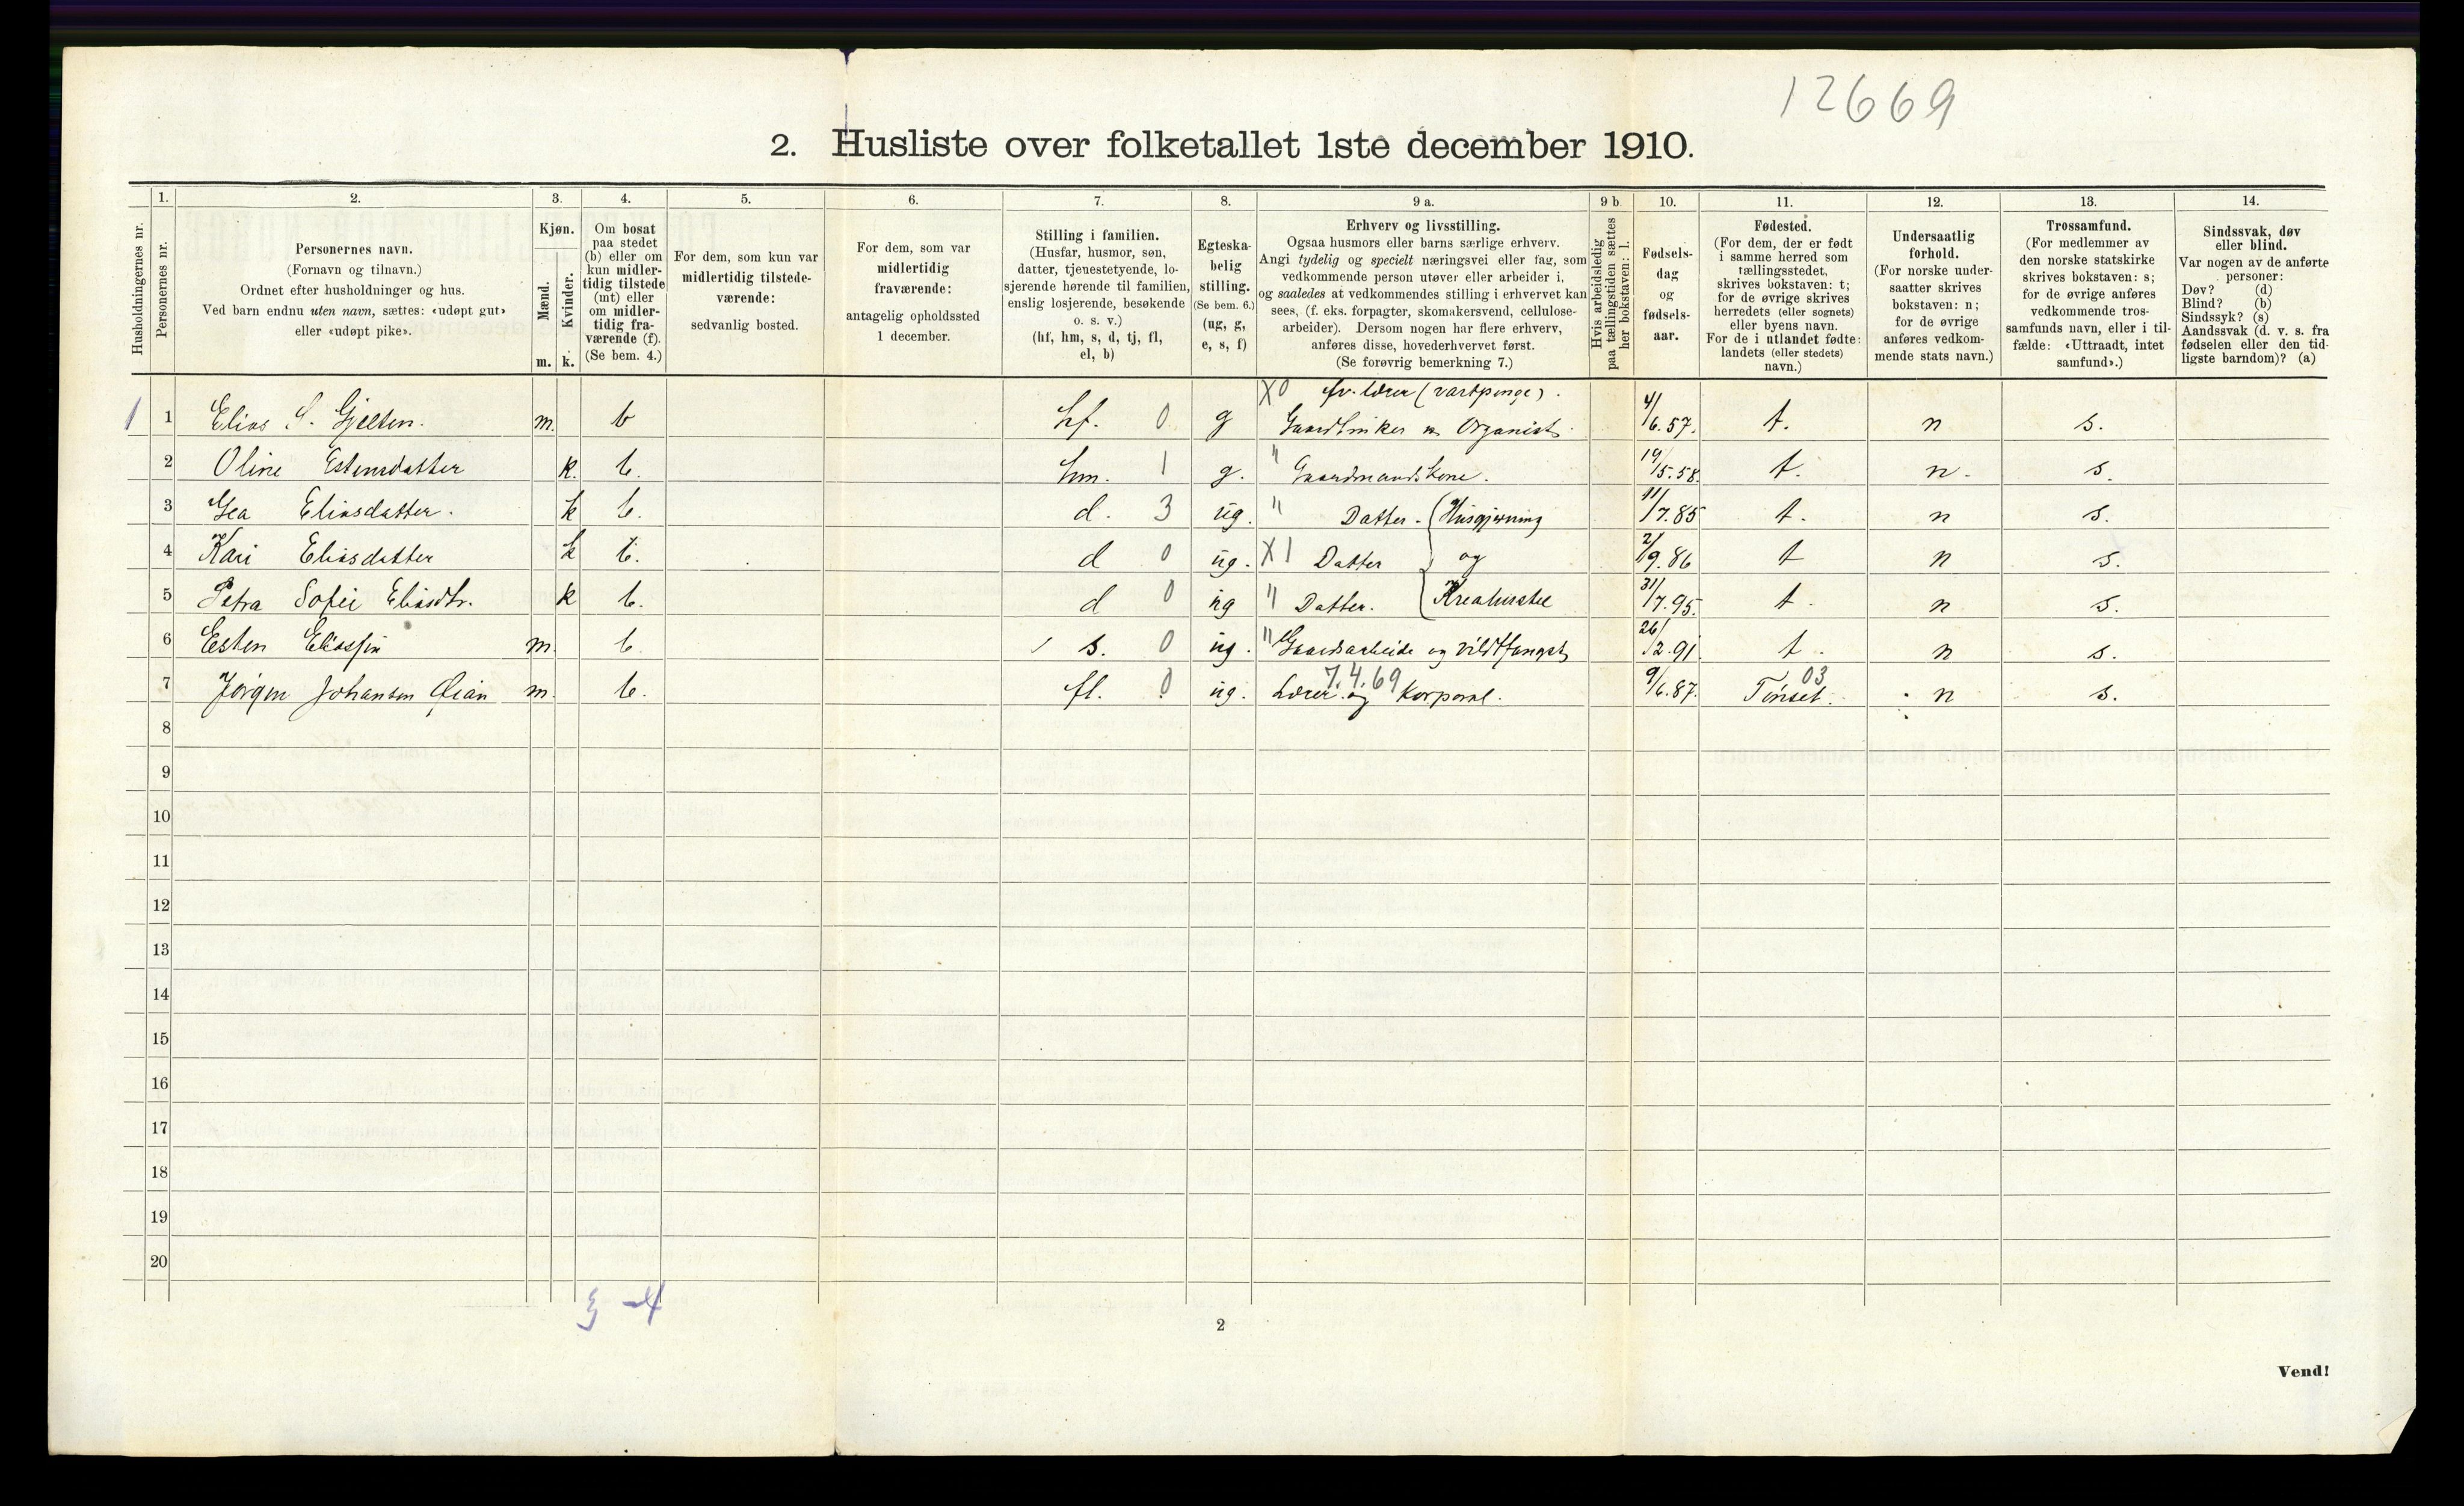 12669
2. Husliste over folketallet 1ste december 1910.
Husholdningernes nr.
1.
Personernes nr.
2.
Personernes navn.
(Fornavn og tilnavn.)
Ordnet efter husholdninger og hus.
Ved barn endnu uten navn, sættes: «udøpt gut»
eller «udøpt pike».
3.
Kjøn.
Mænd.
m.
Kvinder.
k.
4.
Om bosat
paa stedet
(b) eller om
kun midler-
tidig tilstede
(mt) eller
om midler-
tidig fra-
værende (f).
(Se bem. 4.)
5.
For dem, som kun var
midlertidig tilstede-
værende:
sedvanlig bosted.
6.
For dem, som var
midlertidig
fraværende:
antagelig opholdssted
1 december.
7.
Stilling i familien.
(Husfar, husmor, søn,
datter, tjenestetyende, lo-
sjerende hørende til familien,
enslig losjerende, besøkende
o. s. v.)
(hf, hm, s, d, tj, fl,
el, b)
8.
Egteska-
belig
stilling.
(Se bem. 6.)
(ug, g,
e, s, f)
9 a.
Erhverv og livsstilling.
Ogsaa husmors eller barns særlige erhverv.
Angi tydelig og specielt næringsvei eller fag, som
vedkommende person utøver eller arbeider i,
og saaledes at vedkommendes stilling i erhvervet kan
sees, (f. eks. forpagter, skomakersvend, cellulose-
arbeider). Dersom nogen har flere erhverv,
anføres disse, hovederhvervet først.
(Se forøvrig bemerkning 7.)
9 b.
Hvis arbeidsledig
paa tællingstiden sættes
her bokstaven: l.
10.
Fødsels-
dag
og
fødsels-
aar.
11.
Fødested.
(For dem, der er født
i samme herred som
tællingsstedet,
skrives bokstaven: t;
for de øvrige skrives
herredets (eller sognets)
eller byens navn.
For de i utlandet fødte:
landets (eller stedets)
navn.)
12.
Undersaatlig
forhold.
(For norske under-
saatter skrives
bokstaven: n;
for de øvrige
anføres vedkom-
mende stats navn.)
13.
Trossamfund.
(For medlemmer av
den norske statskirke
skrives bokstaven: s;
for de øvrige anføres
vedkommende tros-
samfunds navn, eller i til-
fælde: «Uttraadt, intet
samfund».)
14.
Sindssvak, døv
eller blind.
Var nogen av de anførte
personer:
Døv? (d)
Blind? (b)
Sindssyk? (s)
Aandssvak (d. v. s. fra
fødselen eller den tid-
ligste barndom)? (a)
X0 fv. lærer (vartpenge).
1 1 Elias S. Gjelten. m. b hf. 0 g Gaardbruker Organist 4/6.57. t. n s.
2 Oline Estensdatter k. b. hm. 1 g. " Gaardmandskone. 19/5.58. t. n. s.
3 Gea Eliasdatter. k b. d. 3 ug. " Datter. Husgjerning 11/7.85 t. n s.
4 Kari Eliasdatter k b. d 0 ug. X1 Datter og 2/9.86 t n s.
5 Petra Sofie Eliasdtr. k b. d 0 ug " Datter. Kreaturstel 31/7.95. t. n s.
6 Esten Eliassen m. b. s. 0 ug. " Gaardsarbeide og vildtfangst 26/2.91. t. n s.
7.4.69 03
7 Jørgen Johansen Øian m. b. fl. 0 ug. Lærer og Korporal. 9/6.87. Tönset. n s.
8
9
10
11
12
13
14
15
16
17
18
19
20
3 - 4
2
Vend!